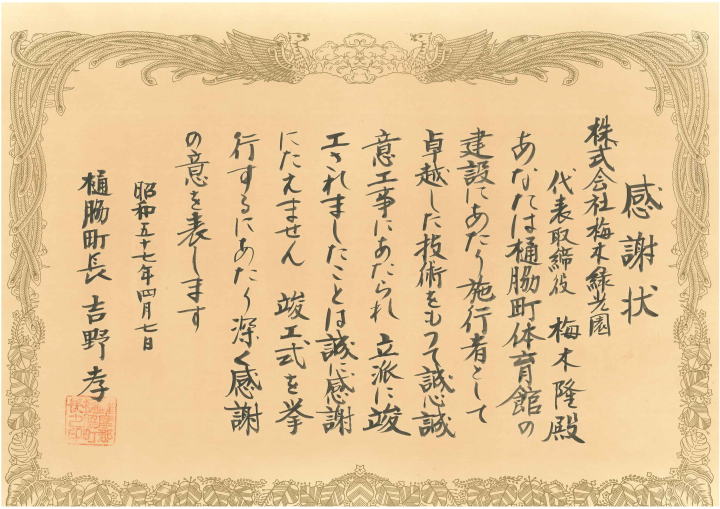 感謝状
株式会社梅木緑光園
代表取締役 梅木隆殿
あなたは樋脇町体育館の
建設にあたり施行者として
卓越した技術をもって誠心誠
意工事にあたられ 立派に竣
工されましたことは誠に感謝
にたえません 竣工式を挙
行するにあたり深く感謝
の意を表します
昭和五十七年四月七日
樋脇町長 吉野孝